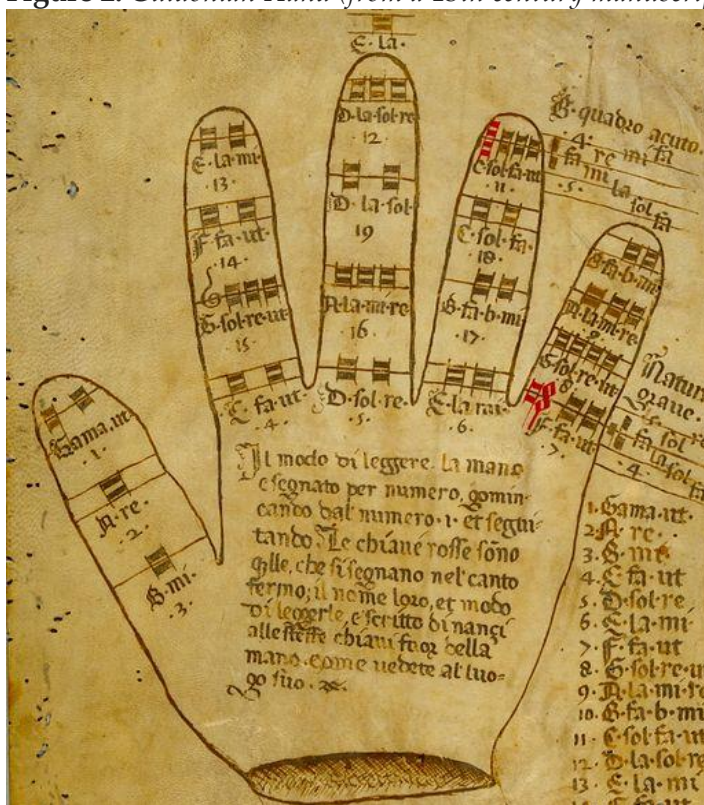 Guidonian Hand (from a
century
E·la·
D·la·sol·re
12·
E·la·mi·
·13·
D·la·sol·
19
F·fa·ut·
·14·
A·la·mi·re
·16·
G·sol·re·ut
15
D·sol·re·
·5·
C·fa·ut·
·4·
C·sol·fa·ut
·11·
C·sol·fa·
·18·
B·fa·b·mi
·17·
E·la·mi·
·6·
B·fa·b·mi
A·la·mi·re·
G·sol·re·ut
8
F·fa·ut·
·7·
Gama·ut·
·1·
A·re·
·2·
B·mi·
·3·
B·quadro acuto·
·4·
fa re mi fa
fa mi la sol fa
·5·
Natur
grave·
fa sol re
la sol fa
·4·
Il modo di leggere· la mano
e segnato per numero, comin-
cando dal numero·1· et segui-
tando· Le chiaue rosse sono
qlle, che si segnano nel canto
fermo; il nome loro, et modo
di leggerle, e scritto dinanci
alle steße chiaui fuor della
mano·come uedete al luo-
go suo·
1·Gama·ut·
2·A·re·
3·B·mi·
4·C·fa·ut
5·D·sol·re
6·E·la·mi
7·F·fa·ut
8·G·sol·re·u
9·A·la·mi·re
10·B·fa·b·mi
11·C·sol·fa·ut
12·D·la·sol·re
13·E·la·mi